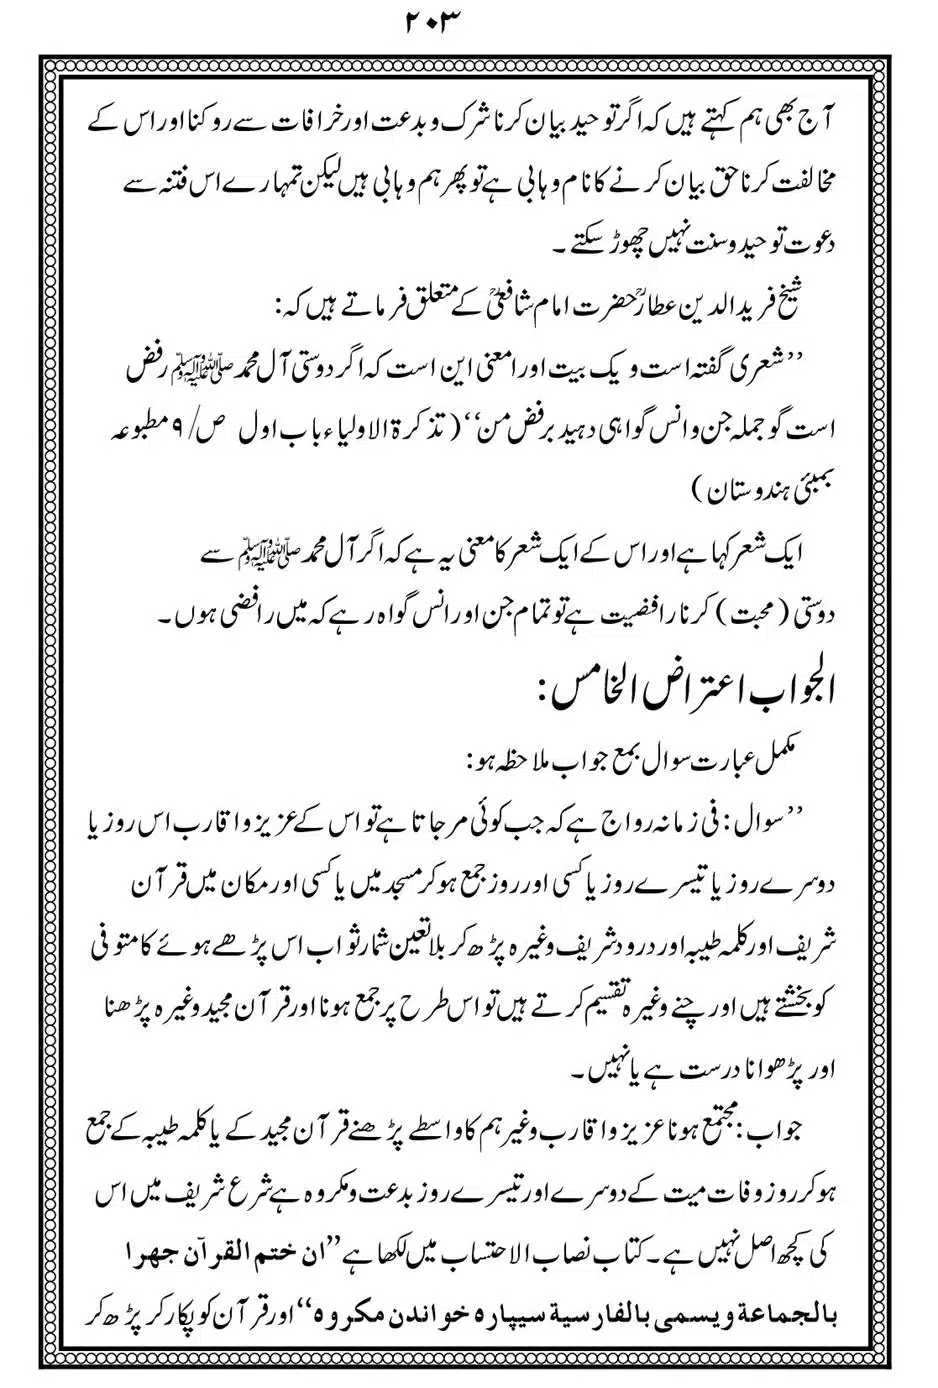 ۲۰۳
آج بھی ہم کہتے ہیں کہ اگر توحید بیان کرنا شرک و بدعت اور خرافات سے روکنا اور اس کے
مخالفت کرنا حق بیان کرنے کا نام وہابی ہے تو پھر ہم وہابی ہیں لیکن تمہارے اس فتنہ سے
دعوت توحید و سنت نہیں چھوڑ سکتے ۔
شیخ فرید الدین عطارؒ حضرت امام شافعیؒ کے متعلق فرماتے ہیں کہ:
’’شعری گفتہ است و یک بیت اور امعنی این است کہ اگر دوستی آل محمد ﷺ رفض
است گو جملہ جن و انس گواہی دہید بر فض من‘‘ (تذکرۃ الاولیاء باب اول ص/۹ مطبوعہ
بمبئی ہندوستان)
ایک شعر کہا ہے اور اس کے ایک شعر کا معنی یہ ہے کہ اگر آل محمد ﷺ سے
دوستی (محبت) کرنا رافضیت ہے تو تمام جن اور انس گواہ رہے کہ میں رافضی ہوں۔
الجواب اعتراض الخامس:
مکمل عبارت سوال بمع جواب ملاحظہ ہو:
’’سوال: فی زمانہ رواج ہے کہ جب کوئی مر جاتا ہے تو اس کے عزیز و اقارب اس روز یا
دوسرے روز یا تیسرے روز یا کسی اور روز جمع ہو کر مسجد میں یا کسی اور مکان میں قرآن
شریف اور کلمہ طیبہ اور درود شریف وغیرہ پڑھ کر بلا تعین شمار ثواب اس پڑھے ہوئے کا متوفی
کو بخشتے ہیں اور چنے وغیرہ تقسیم کرتے ہیں تو اس طرح پر جمع ہونا اور قرآن مجید وغیرہ پڑھنا
اور پڑھوانا درست ہے یا نہیں۔
جواب: مجتمع ہونا عزیز و اقارب وغیرہم کا واسطے پڑھنے قرآن مجید کے یا کلمہ طیبہ کے جمع
ہو کر روز وفات میت کے دوسرے اور تیسرے روز بدعت و مکروہ ہے شرع شریف میں اس
کی کچھ اصل نہیں ہے۔ کتاب نصاب الاحتساب میں لکھا ہے’’ان ختم القرآن جھرا
بالجماعۃ ویسمی بالفارسیۃ سیپارہ خواندن مکروہ‘‘ اور قرآن کو پکار کر پڑھ کر